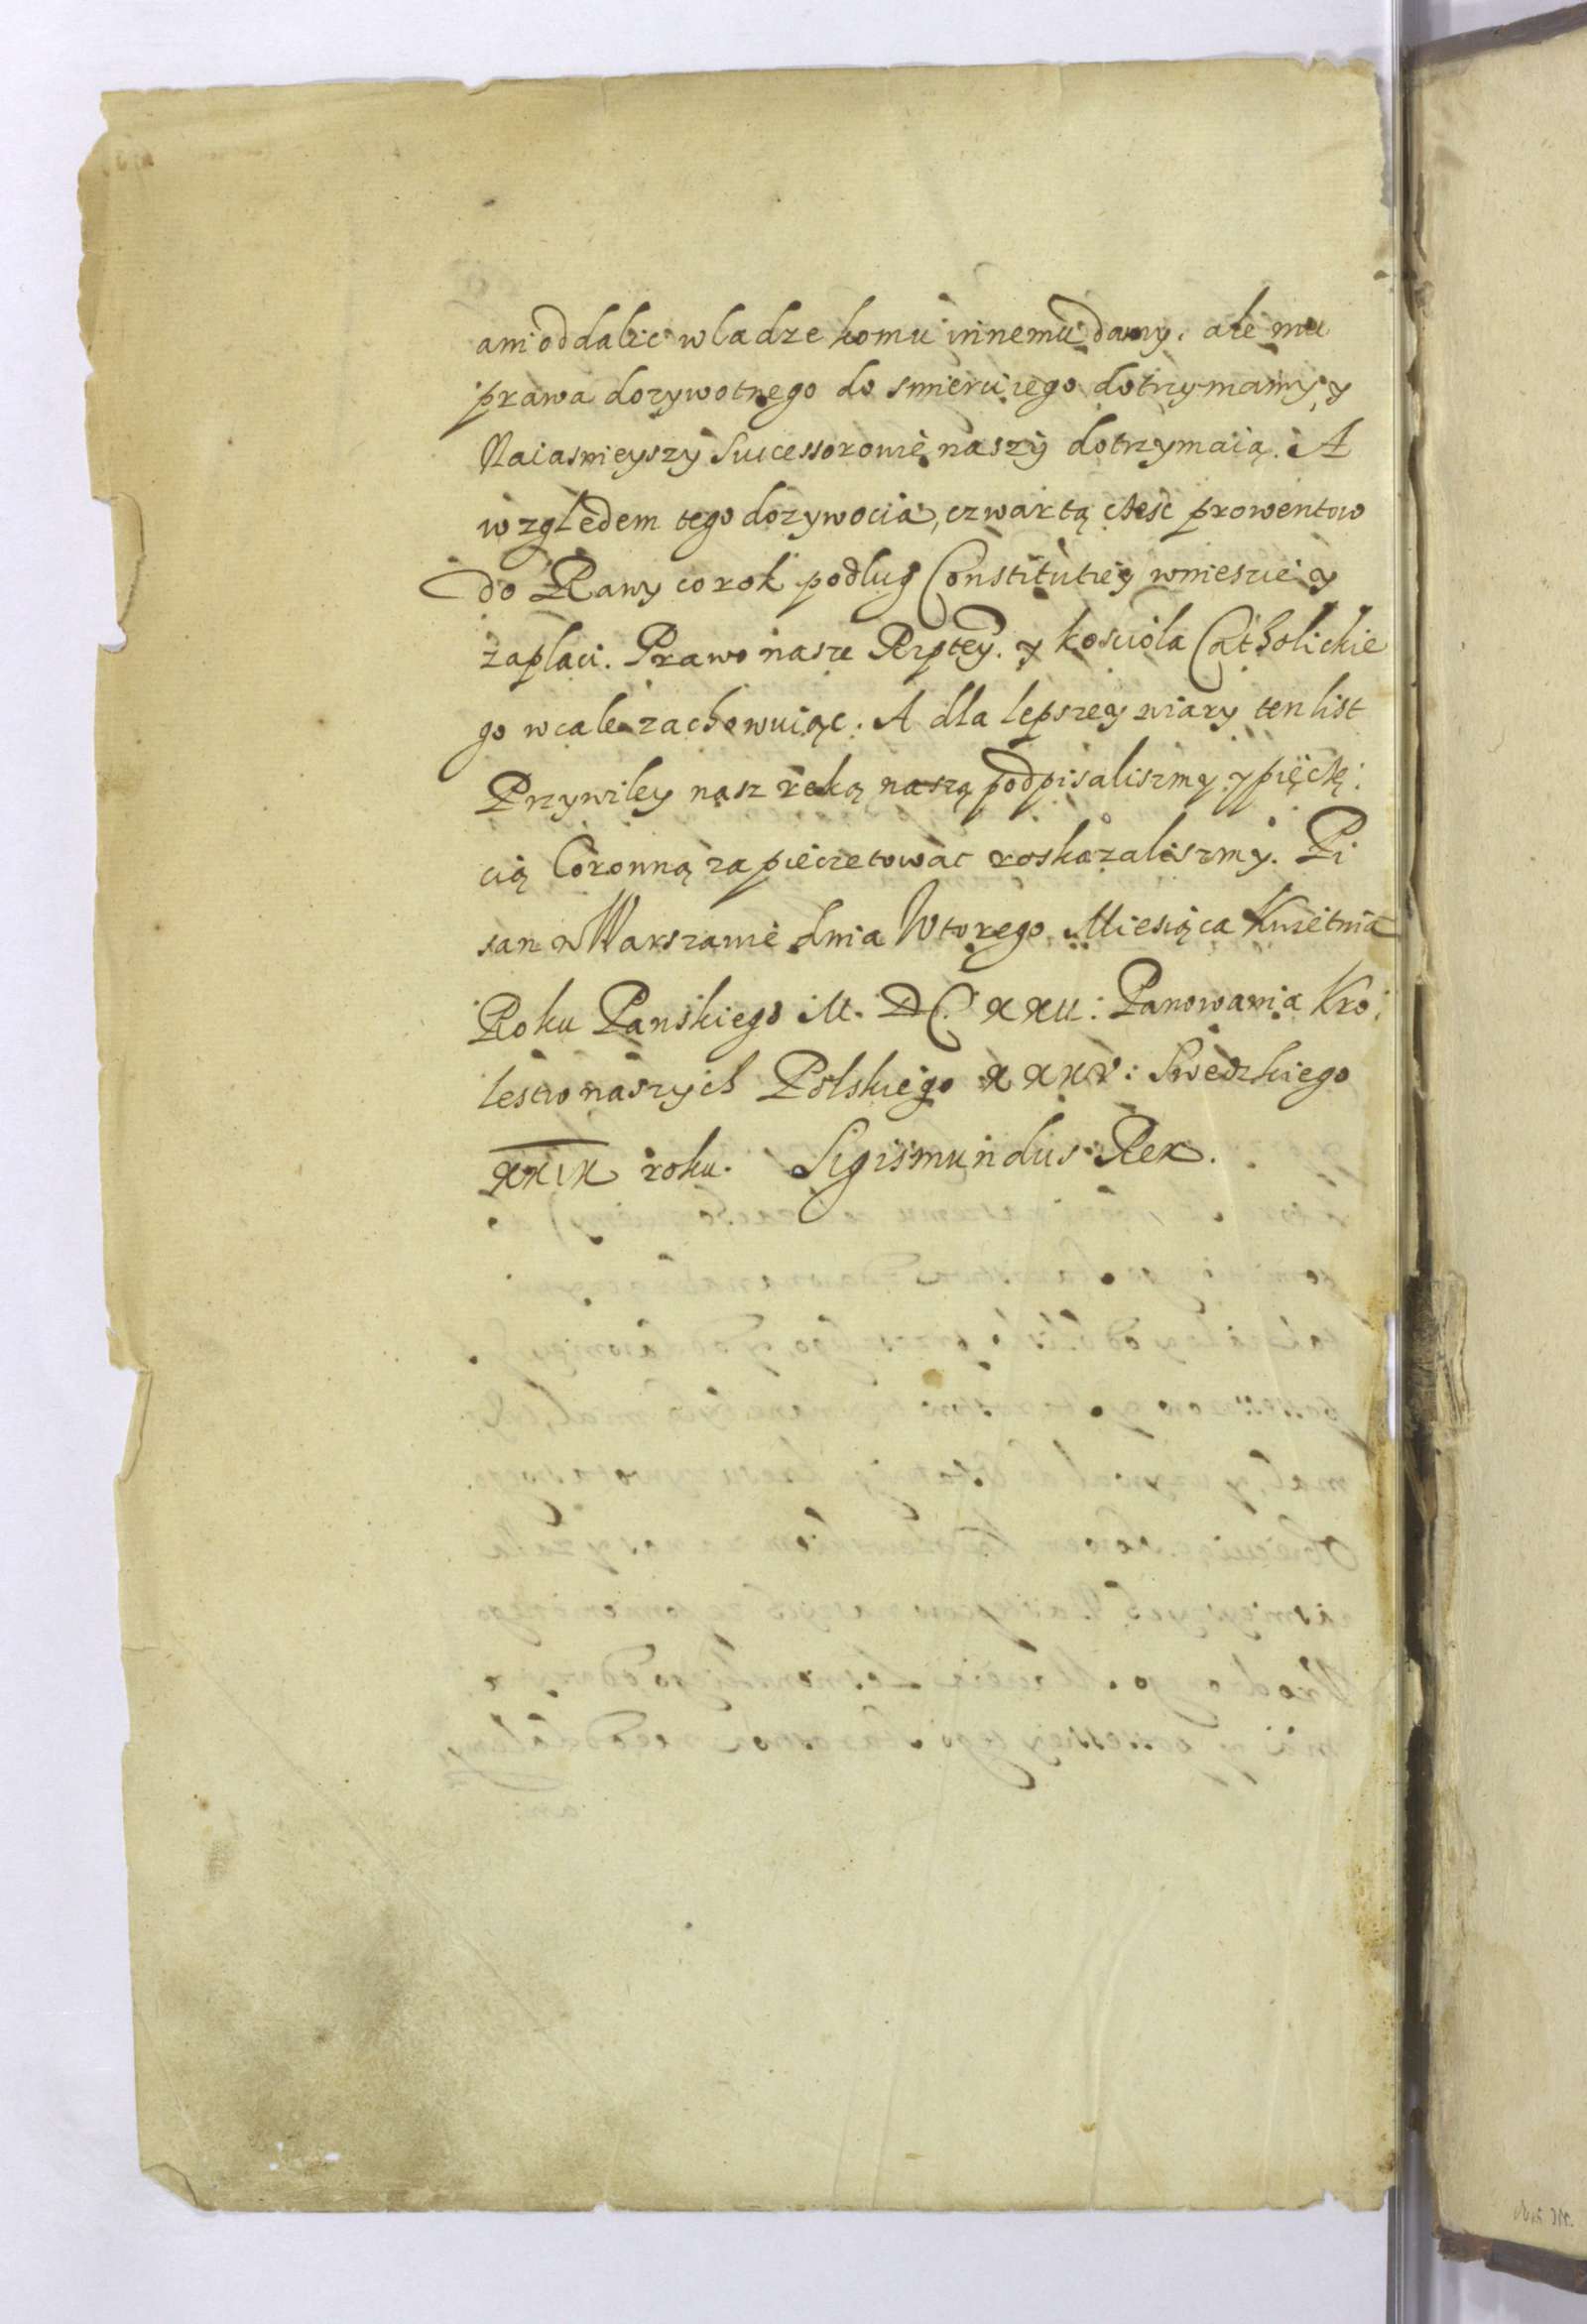 ani oddalic wladze komu innemu damy. ale mu
prawa dozywotnego do smierci iego dotrzymamy, y
Naiasnieyszy Successorowie naszy dotrzymaią. A
względem tego dozywocia, czwartą część prowentow
do Rawy co rok podlug Constitutiey wniesie y
zaplaci. Prawo nasze Rzptey. y kosciola Catholickie
go wcale zachowuiąc. A dla lepszey wiary ten list
Przywiley nasz ręką naszą podpisaliszmy. y pięczę:
cią Coronną zapieczetowac roskazaliszmy. Pi
san w Warszawie dnia Wtorego Miesiąca Kwietnia
Roku Panskiego M. DC. XXII: Panowania Kro
lestw naszych Polskiego XXXV: Swedzkiego
XXIX roku. Sigismundus Rex.